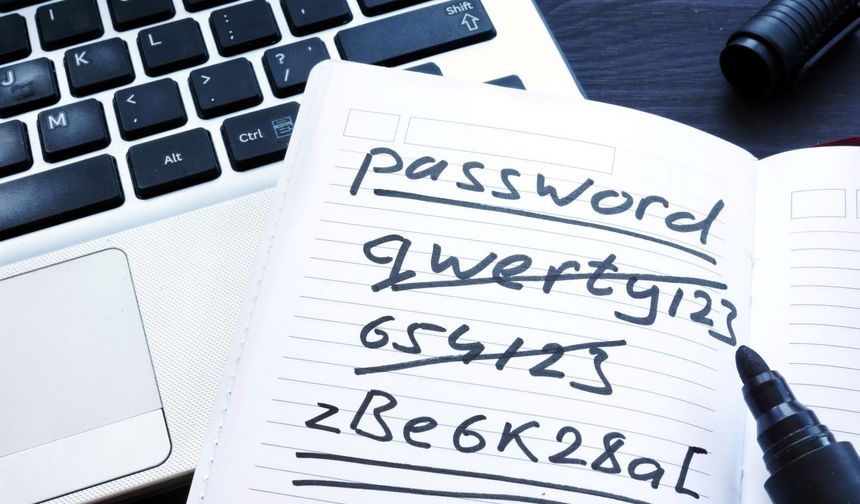 Shift
J
K
L
:
;
"
'
M
<
,
>
.
?
/
Alt
Ctrl
password
qwerty123
654123
zBe6K28a[